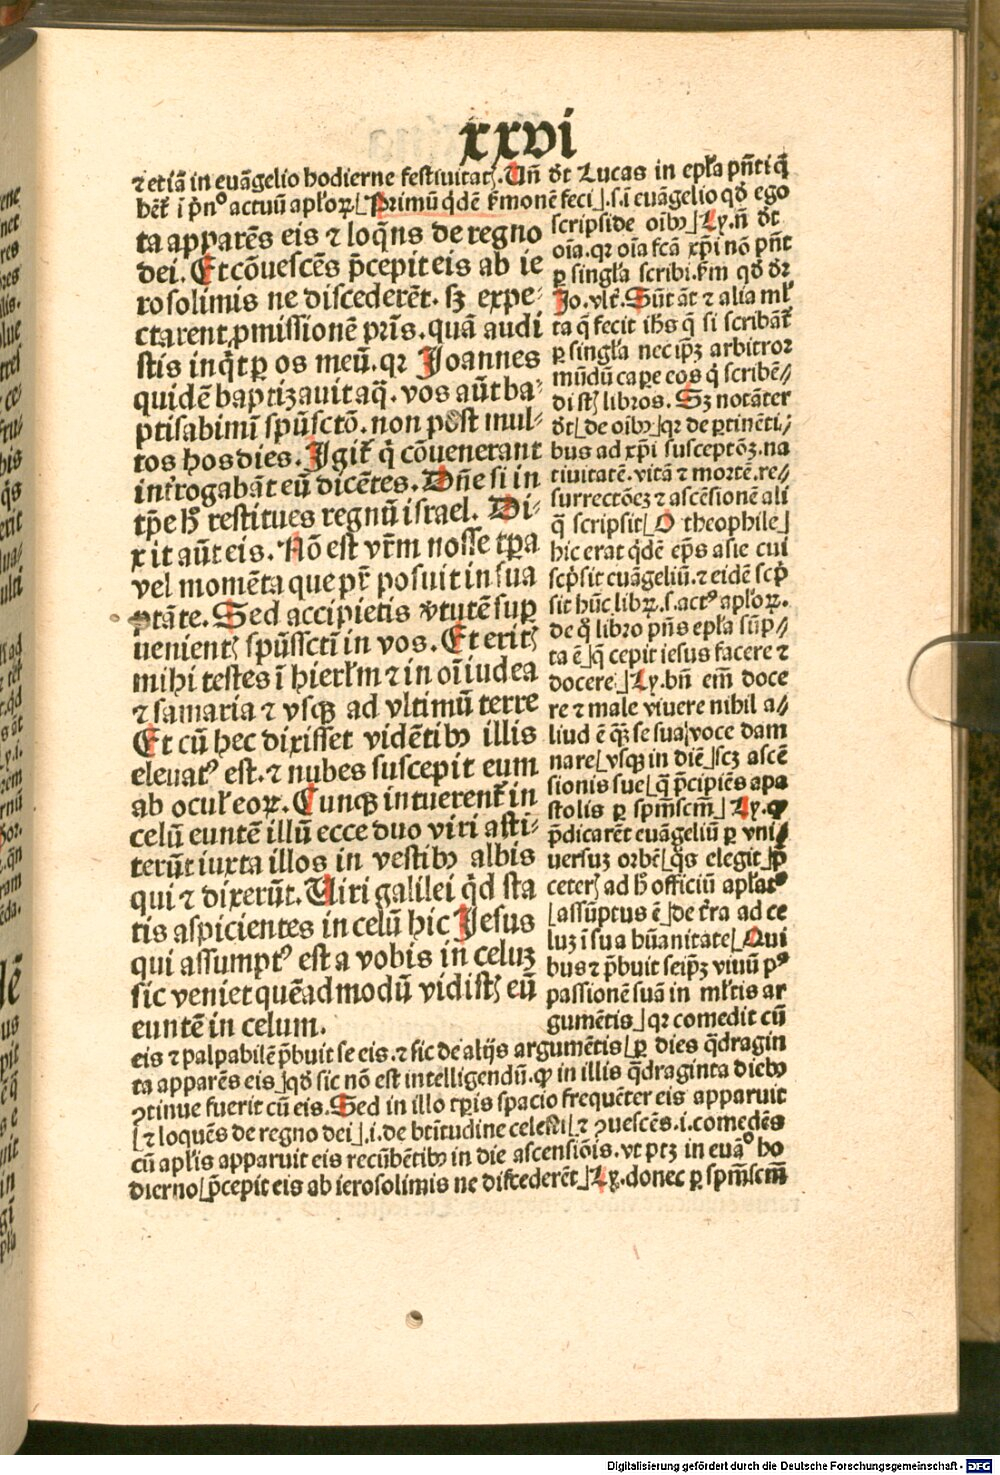 xxvi
⁊ etiā in euāgelio hodierne festiuitatꝭ. Uñ dt Lucas in epła pñti q̄
hēt̄ i pͥnͦ actuū apłoꝝ Primū qͥdē ẜmonē feci .s.i euāgelio qd̄ ego
ta apparēs eis ⁊ loq̄ns de regno
dei. Et cōuescēs p̄cepit eis ab ie
rosolimis ne discederēt. sꝫ expe⸗
ctarent ꝓmissionē pr̄is. quā audi
stis inq̄t ꝑ os meū. qꝛ Joannes
quidē baptizauit aq̄. vos aūt ba⸗
ptisabimī spūsctō. non post mul⸗
tos hos dies. Jgit̄ qͥ cōuenerant
int̄rogabāt eū dicētes. Dn̄e si in
tp̄e h̄ restitues regnū israel. Di⸗
xit aūt eis. Nō est vr̄m nosse tp̄a
vel momēta que pr̄ posuit in sua
ptāte. Sed accipietis v̓tutē suꝑ
uenientꝭ spūssctī in vos. Et eritꝭ
mihi testes ī hierłm ⁊ in oī iudea
⁊ samaria ⁊ vsqꝫ ad vltimū terre
Et cū hec dixisset vidētibꝰ illis
eleuatꝰ est. ⁊ nubes suscepit eum
ab ocuł eoꝝ. Cunqꝫ intuerent̄ in
celū euntē illū ecce duo viri asti⸗
terūt iuxta illos in vestibꝰ albis
qui ⁊ dixerūt. Uiri galilei qͥd sta
tis aspicientes in celū hic Jesus
qui assumptꝰ est a vobis in celuꝫ
sic veniet quēadmodū vidistꝭ eū
euntē in celum.
scripsi de oībꝰ Ly. ñ dt
oīa. qꝛ oīa fcā xp̄i nō pn̄t
ꝑ singła scribi. ẜm qd̄ dꝛ
Jo. vlt̄. Sūt āt ⁊ alia mł
ta q̄ fecit ihs̄ q̄ si scribāt̄
ꝑ singła nec ipꝫ arbitror
mūdū caꝑe eos qͥ scribē⸗
di sꝭ libros. Sꝫ notāter
dt de oībꝰ qꝛ de ꝑtinēti⸗
bus ad xp̄i susceptōꝫ. na
tiuitatē. vitā ⁊ mortē. re⸗
surrectōeꝫ ⁊ ascēsionē ali
q̄ scripsit O theophile
hic erat qͥdē ep̄s asie cui
scp̄sit euāgeliū. ⁊ eidē scp̄
sit hūc libꝝ .s. actꝰ apłoꝝ.
de qͦ libro pn̄s epła sūp⸗
ta ē q̄ cepit iesus facere ⁊
docere Ly. bn̄ em̄ doce
re ⁊ male viuere nihil a⸗
liud ē qꝫ se sua voce dam
nare vsqꝫ in diē scꝫ ascē
sionis sue q̄ p̄cipiēs apo
stolis ꝑ spm̄scm̄ Ly. ꝙ
p̄dicarēt euāgeliū ꝑ vni⸗
uersuꝫ orbē q̄s elegit p̄
ceterꝭ ad h̄ officiū apłatꝰ
assūptus ē de t̄ra ad ce
luꝫ ī sua hūanitate Qui
bus ⁊ p̄buit seipꝫ viuū pꝰ
passionē suā in młtis ar
gumētis qꝛ comedit cū
eis ⁊ palpabilē p̄buit se eis. ⁊ sic de alijs argumētis ꝑ dies q̄dragin
ta apparēs eis qd̄ sic nō est intelligendū. ꝙ in illis q̄draginta diebꝰ
ꝯtinue fuerit cū eis. Sed in illo tꝑis spacio frequēter eis apparuit
⁊ loquēs de regno dei .i. de btītudine celesti ⁊ ꝯuescēs .i. comedēs
cū apłis apparuit eis recūbētibꝰ in die ascensiōis. vt ptꝫ in euāͦ ho
dierno p̄cepit eis ab ierosolimis ne discederēt Ly. donec ꝑ spm̄scm̄
Digitalisierung gefördert durch die Deutsche Forschungsgemeinschaft - DFG